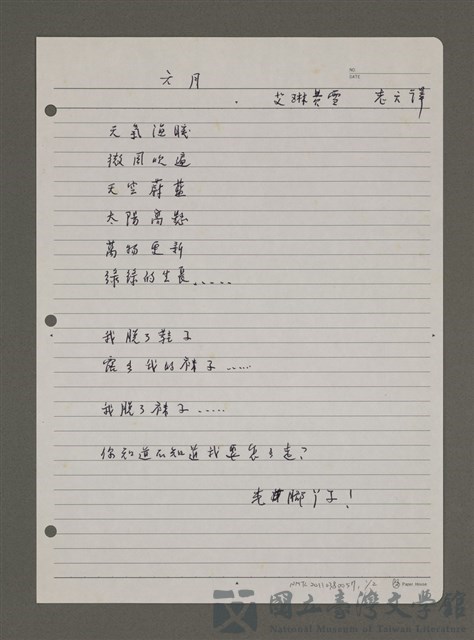 NO.
DATE
六月
艾琳費雪 志六譯
天氣溫暖
微風吹遍
天空蔚藍
太陽高懸
萬物更新
綠綠的生長.....
我脫了鞋子
露出我的襪子.....
我脫了襪子.....
你知道不知道我要怎了走？
光著腳丫子！
NMTL20110380059, 1/2
Paper House
國立臺灣文學館
National Museum of Taiwan Literature